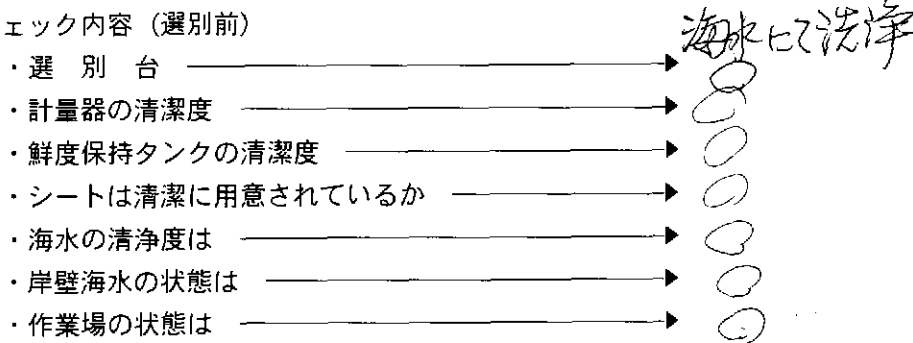 ェック内容（選別前）
海水にて洗浄
・選　別　台 ○
・計量器の清潔度 ○
・鮮度保持タンクの清潔度 ○
・シートは清潔に用意されているか ○
・海水の清浄度は ○
・岸壁海水の状態は ○
・作業場の状態は ○